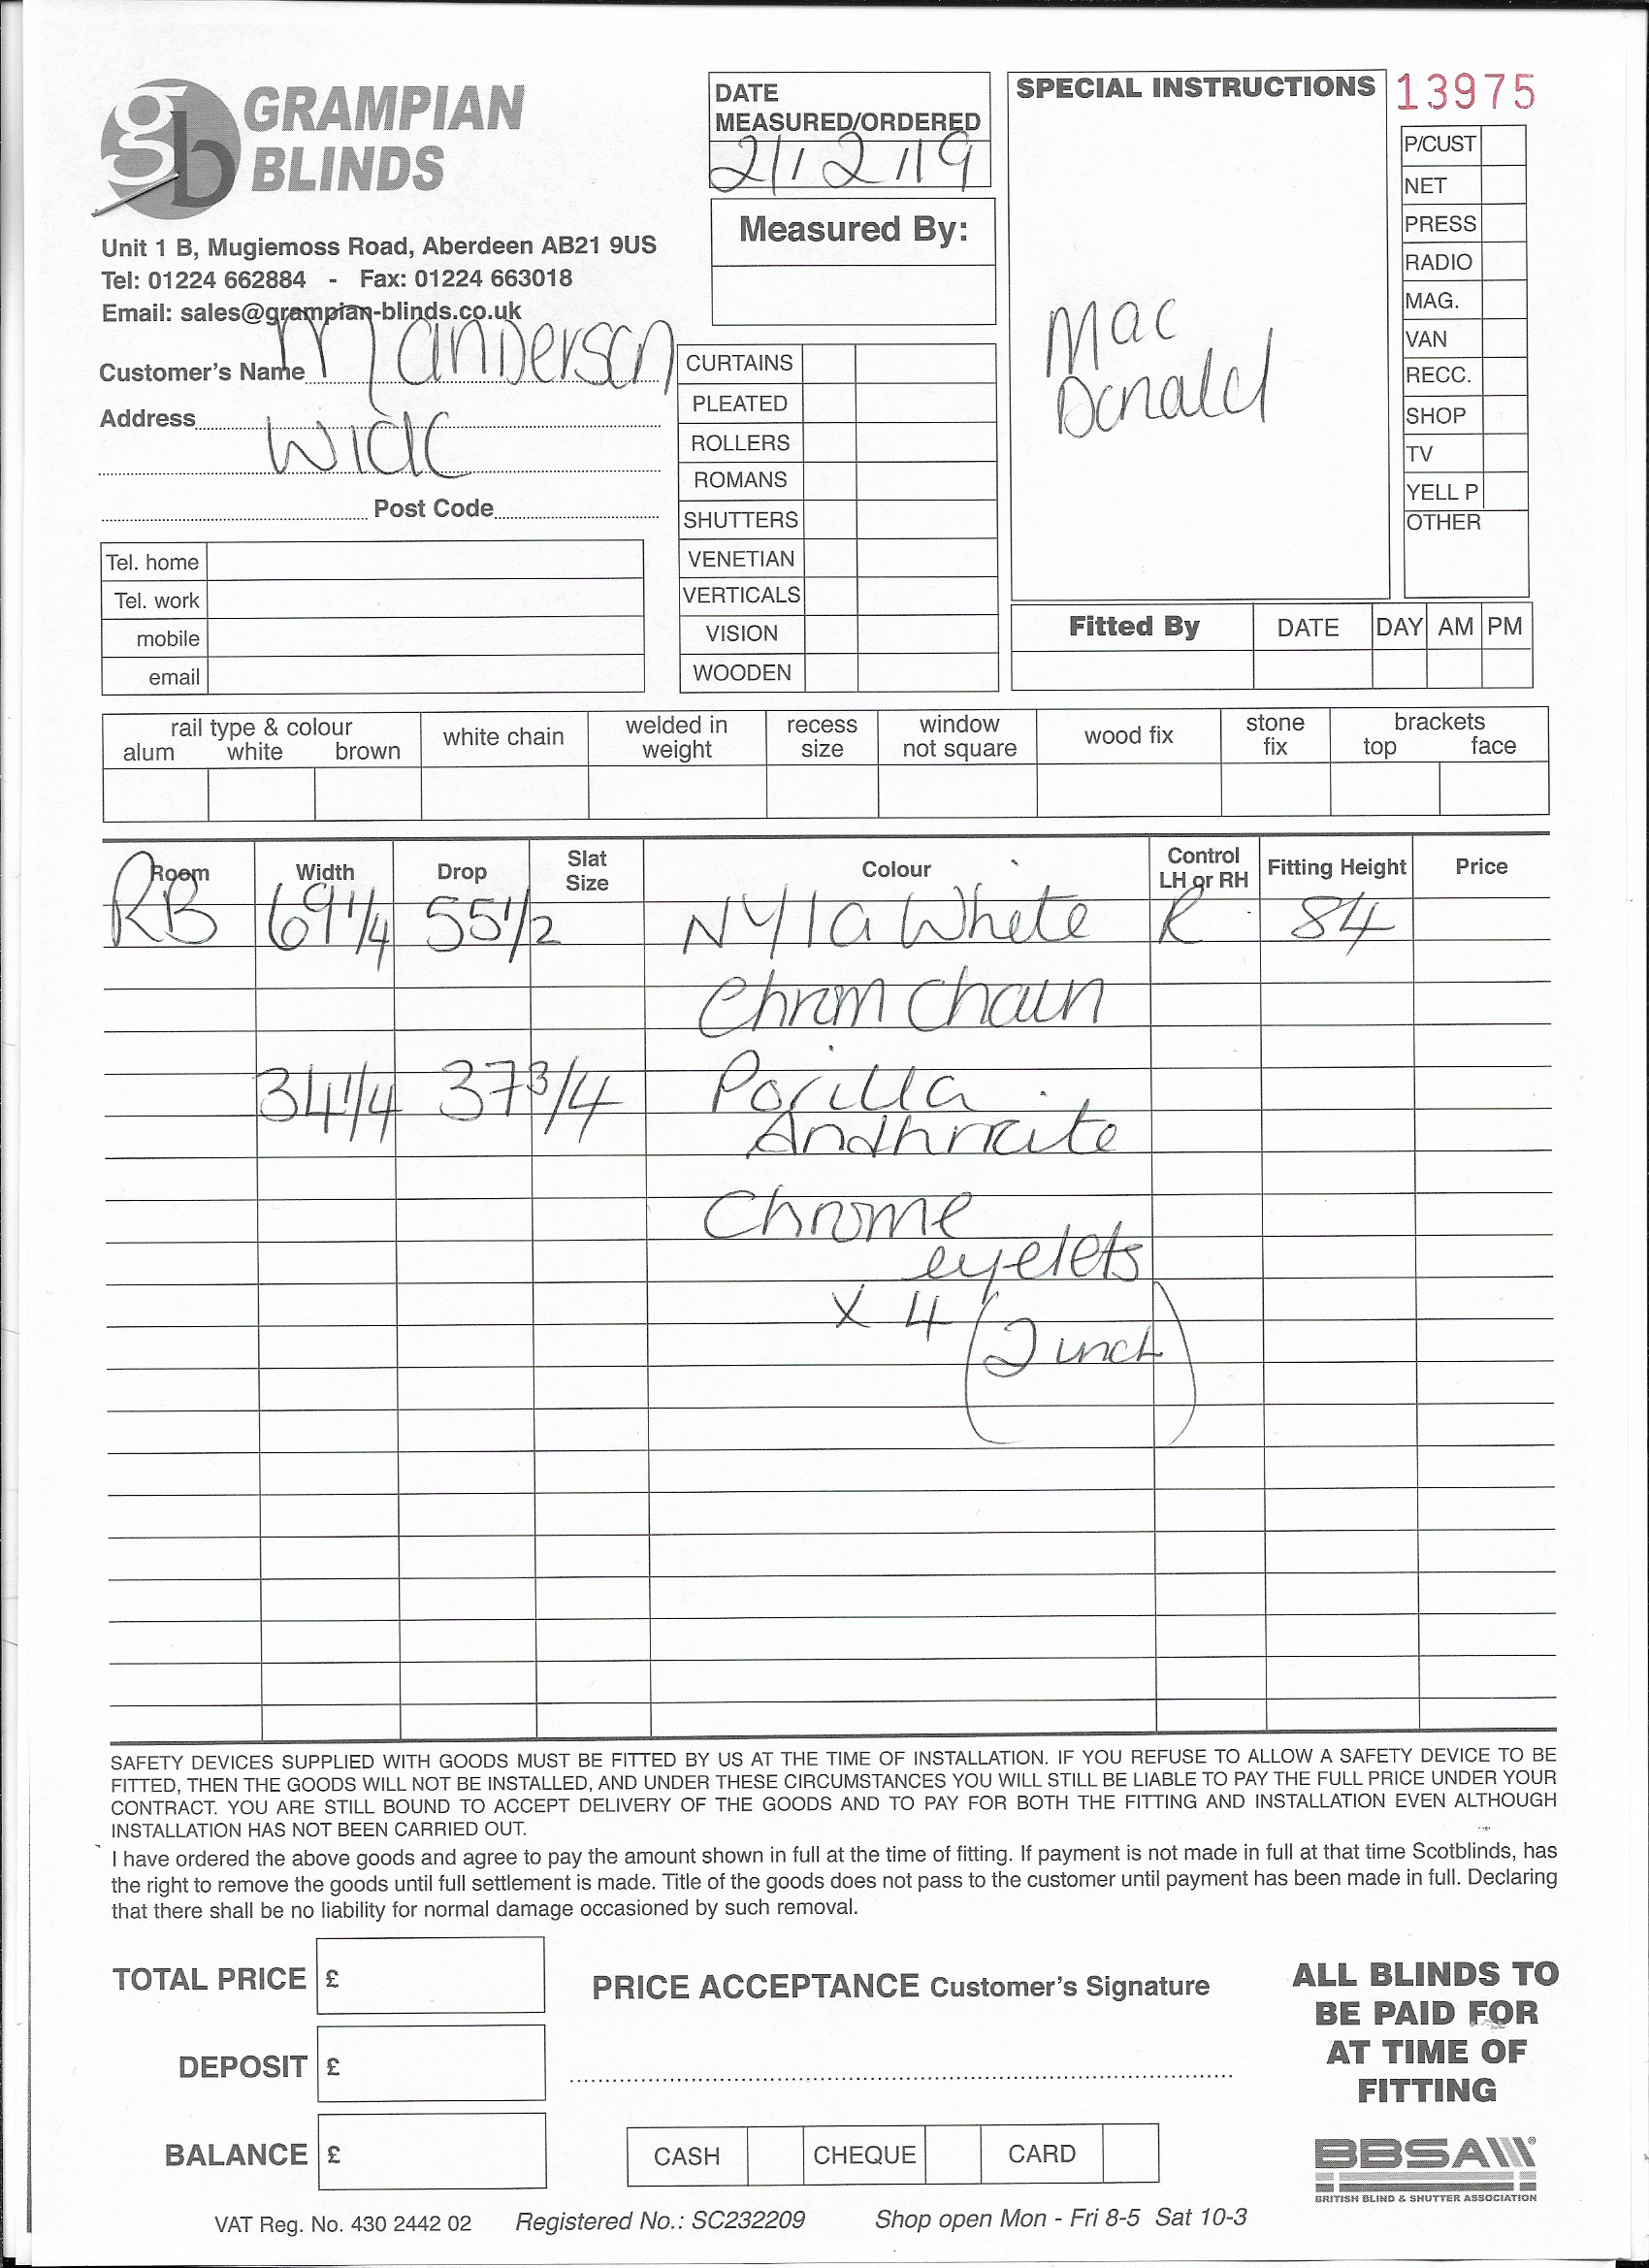 gb GRAMPIAN
BLINDS
Unit 1 B, Mugiemoss Road, Aberdeen AB21 9US
Tel: 01224 662884 - Fax: 01224 663018
Email: sales@grampian-blinds.co.uk
Customer's Name M anderson
Address
Wick
Post Code
Tel. home
Tel. work
mobile
email
DATE
MEASURED/ORDERED
2/12/19
Measured By:
CURTAINS
PLEATED
ROLLERS
ROMANS
SHUTTERS
VENETIAN
VERTICALS
VISION
WOODEN
SPECIAL INSTRUCTIONS
Mac
Donald
13975
P/CUST
NET
PRESS
RADIO
MAG.
VAN
RECC.
SHOP
TV
YELL P
OTHER
Fitted By DATE DAY AM PM
rail type & colour
alum white brown
white chain
welded in
weight
recess
size
window
not square
wood fix
stone
fix
brackets
top face
Room Width Drop Slat Size Colour Control LH or RH Fitting Height Price
RB 69 1/4 55 1/2 Nyla White R 84
Chrom Chain
34 1/4 37 3/4 Porilla
Andhrcite
Chrome
eyelets
x 4 (2 inch)
SAFETY DEVICES SUPPLIED WITH GOODS MUST BE FITTED BY US AT THE TIME OF INSTALLATION. IF YOU REFUSE TO ALLOW A SAFETY DEVICE TO BE
FITTED, THEN THE GOODS WILL NOT BE INSTALLED, AND UNDER THESE CIRCUMSTANCES YOU WILL STILL BE LIABLE TO PAY THE FULL PRICE UNDER YOUR
CONTRACT. YOU ARE STILL BOUND TO ACCEPT DELIVERY OF THE GOODS AND TO PAY FOR BOTH THE FITTING AND INSTALLATION EVEN ALTHOUGH
INSTALLATION HAS NOT BEEN CARRIED OUT.
I have ordered the above goods and agree to pay the amount shown in full at the time of fitting. If payment is not made in full at that time Scotblinds, has
the right to remove the goods until full settlement is made. Title of the goods does not pass to the customer until payment has been made in full. Declaring
that there shall be no liability for normal damage occasioned by such removal.
TOTAL PRICE £
DEPOSIT £
BALANCE £
PRICE ACCEPTANCE Customer's Signature
CASH CHEQUE CARD
ALL BLINDS TO
BE PAID FOR
AT TIME OF
FITTING
BBSA
BRITISH BLIND & SHUTTER ASSOCIATION
VAT Reg. No. 430 2442 02 Registered No.: SC232209 Shop open Mon - Fri 8-5 Sat 10-3